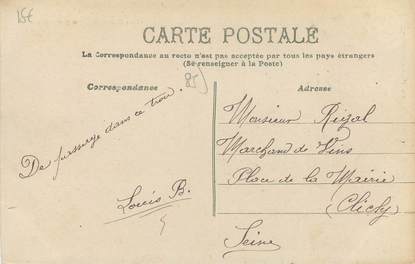 15€
CARTE POSTALE
La Correspondance au recto n'est pas acceptée par tous les pays étrangers
(Se renseigner à la Poste)
Correspondance
Adresse
85)
De passage dans ce trou.
Louis B.
Monsieur Rigal
Marchand de Vins
Place de la Mairie
(Clichy)
Seine